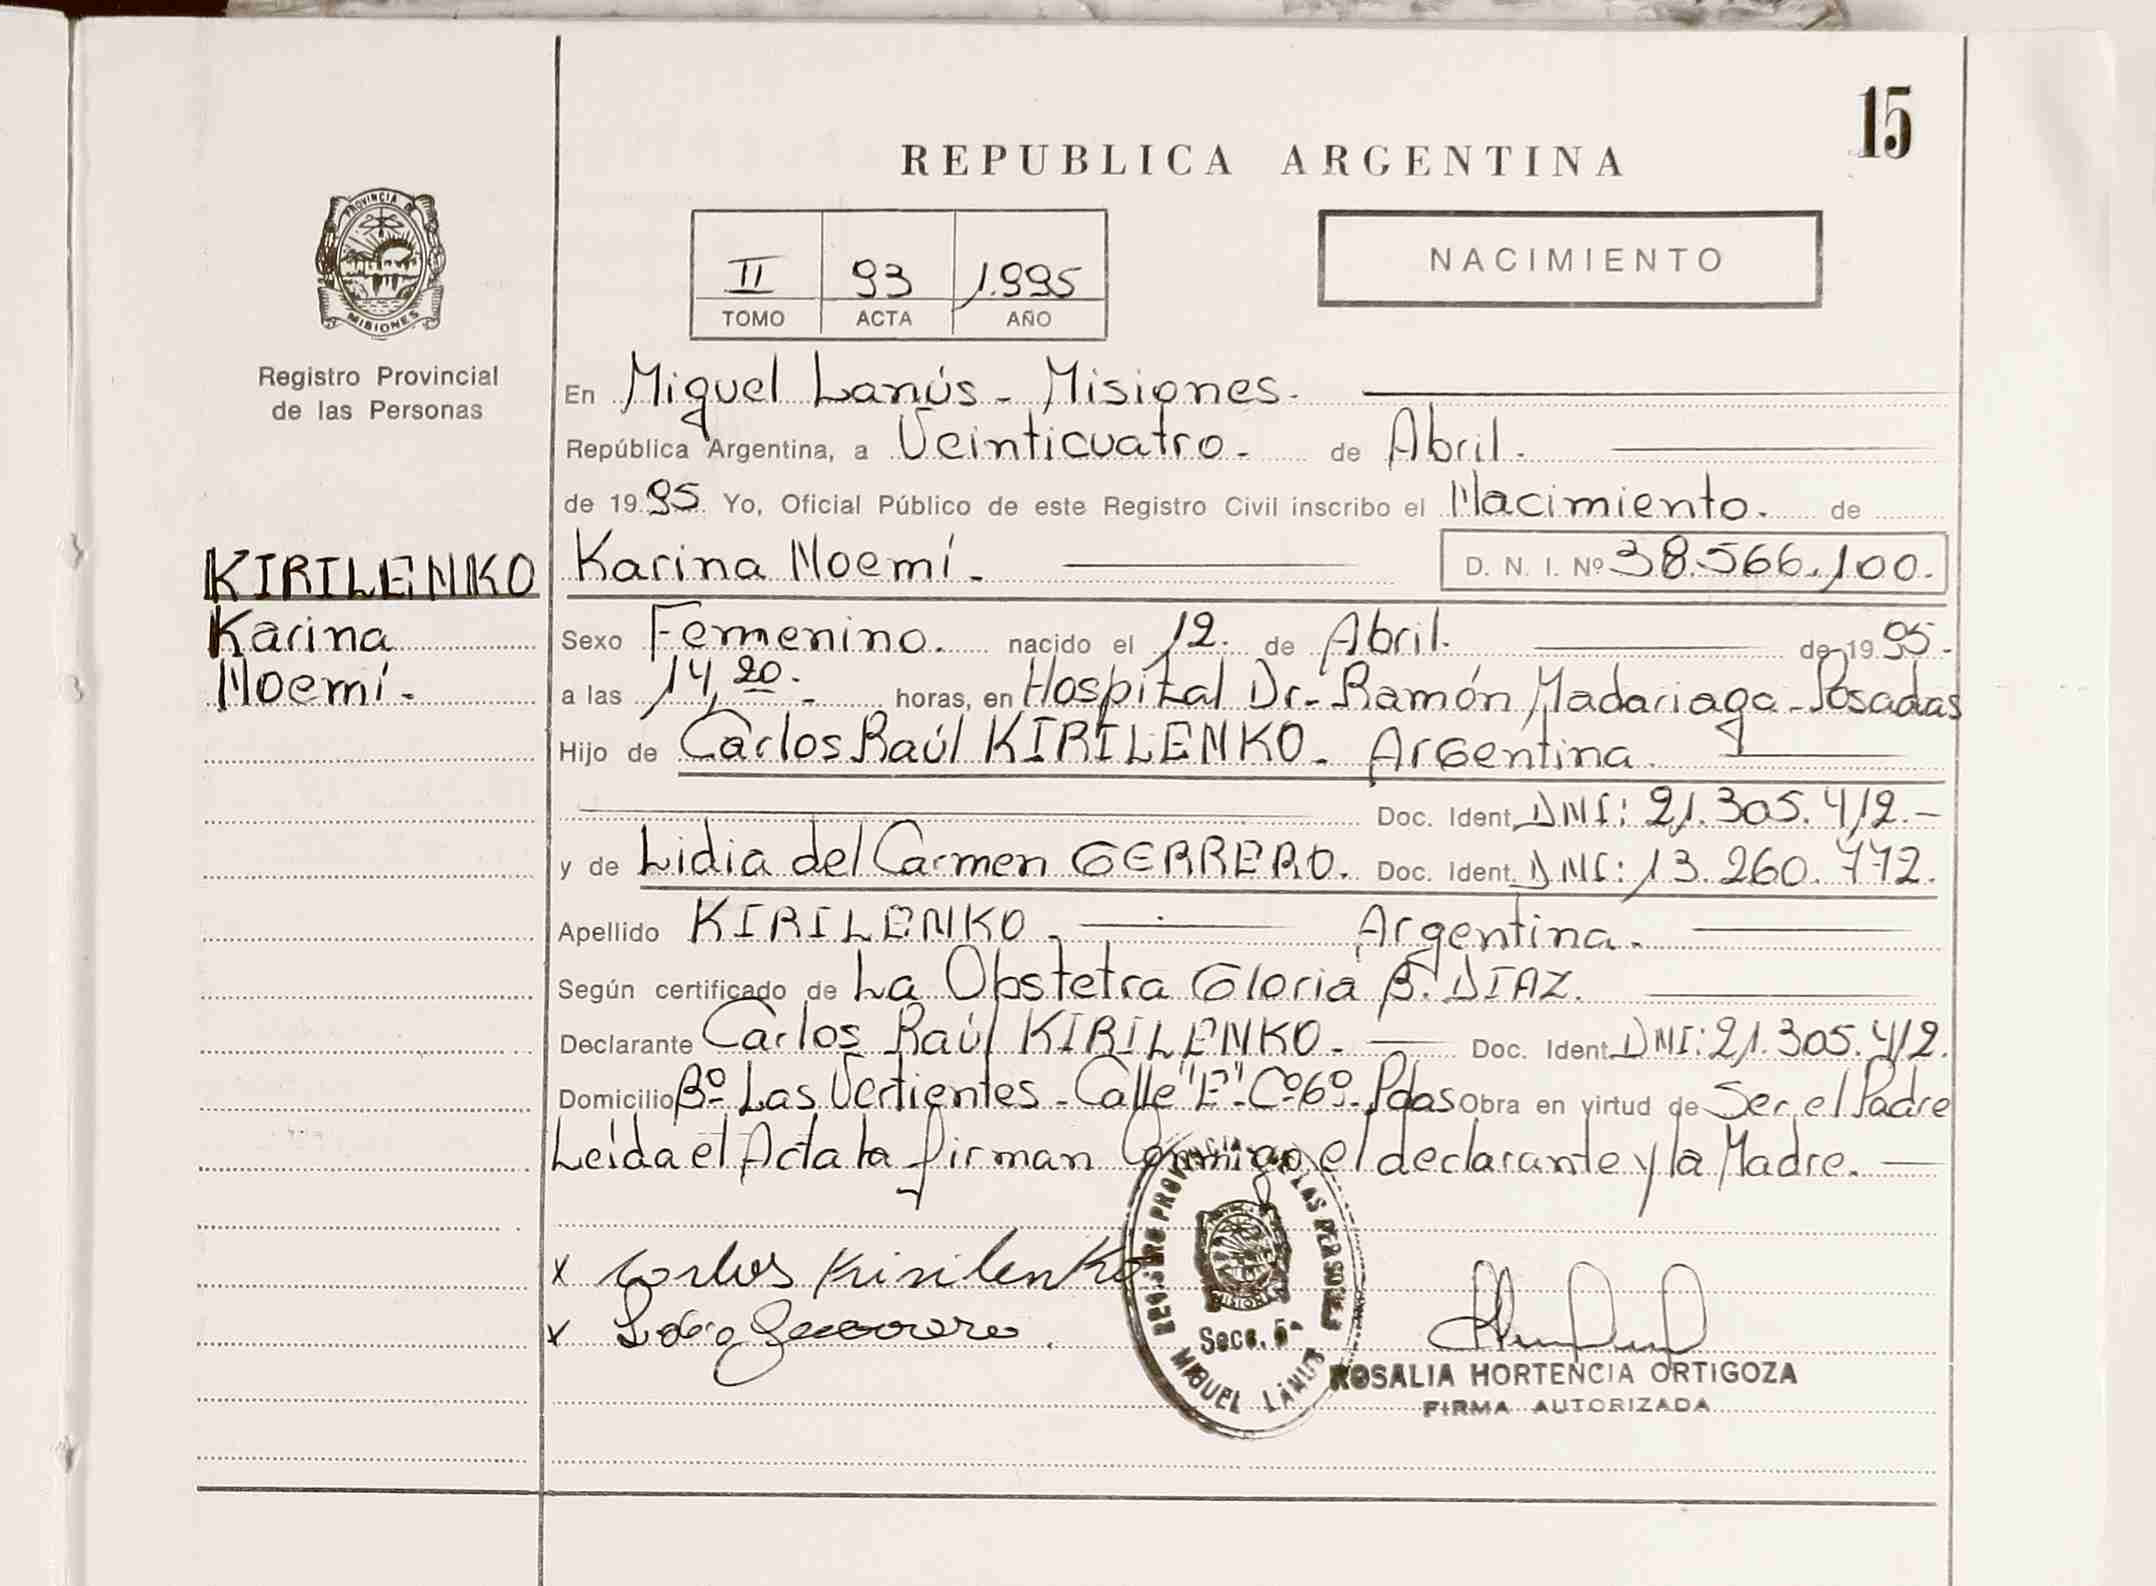 15
REPUBLICA ARGENTINA
PROVINCIA DE
MISIONES
Registro Provincial
de las Personas
II 93 1.995
TOMO ACTA AÑO
NACIMIENTO
En Miguel Lanús - Misiones.
República Argentina, a Veinticuatro. de Abril.
de 1995 Yo, Oficial Público de este Registro Civil inscribo el Nacimiento. de
KIRILENKO Karina Noemí. D. N. I. Nº 38.566.100.
Karina
Noemí.
Sexo Femenino. nacido el 12. de Abril. de 1995.
a las 14,20. horas, en Hospital Dr. Ramón Madariaga - Posadas
Hijo de Carlos Raúl KIRILENKO. Argentina.
Doc. Ident. DNI: 21.305.412.-
y de Lidia del Carmen GERRERO. Doc. Ident. DNI: 13.260.772.
Apellido KIRILENKO. Argentina.
Según certificado de La Obstetra Gloria B. DIAZ.
Declarante Carlos Raúl KIRILENKO. Doc. Ident. DNI: 21.305.412.
Domicilio Bº Las Vertientes - Calle "E" Cº 69. Pdas Obra en virtud de Ser el Padre
Leída el Acta la firman Conmigo el declarante y la Madre.
x Carlos Kirilenko
x Lidia Guerrero.
REGISTRO PROVINCIAL DE LAS PERSONAS
MISIONES
Secc. 5ª
MIGUEL LANUS
ROSALIA HORTENCIA ORTIGOZA
FIRMA AUTORIZADA